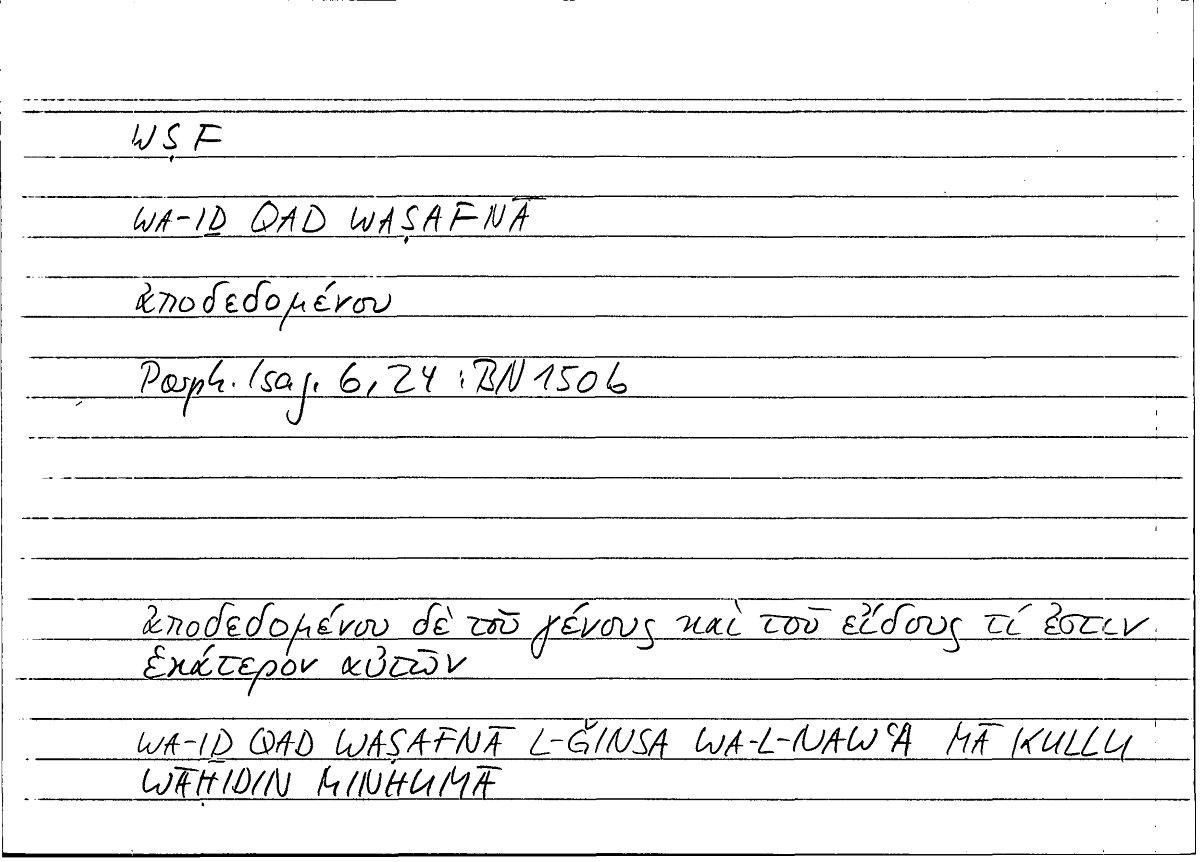 WṢF
WA-IḎ QAD WAṢAFNĀ
ἀποδεδομένου
Porph. Isag. 6, 24 : BN 150b
ἀποδεδομένου δὲ τοῦ γένους καὶ τοῦ εἴδους τί ἐστιν
ἑκάτερον αὐτῶν
WA-IḎ QAD WAṢAFNĀ L-ǦINSA WA-L-NAWʿA MĀ KULLU
WĀḤIDIN MINHUMĀ